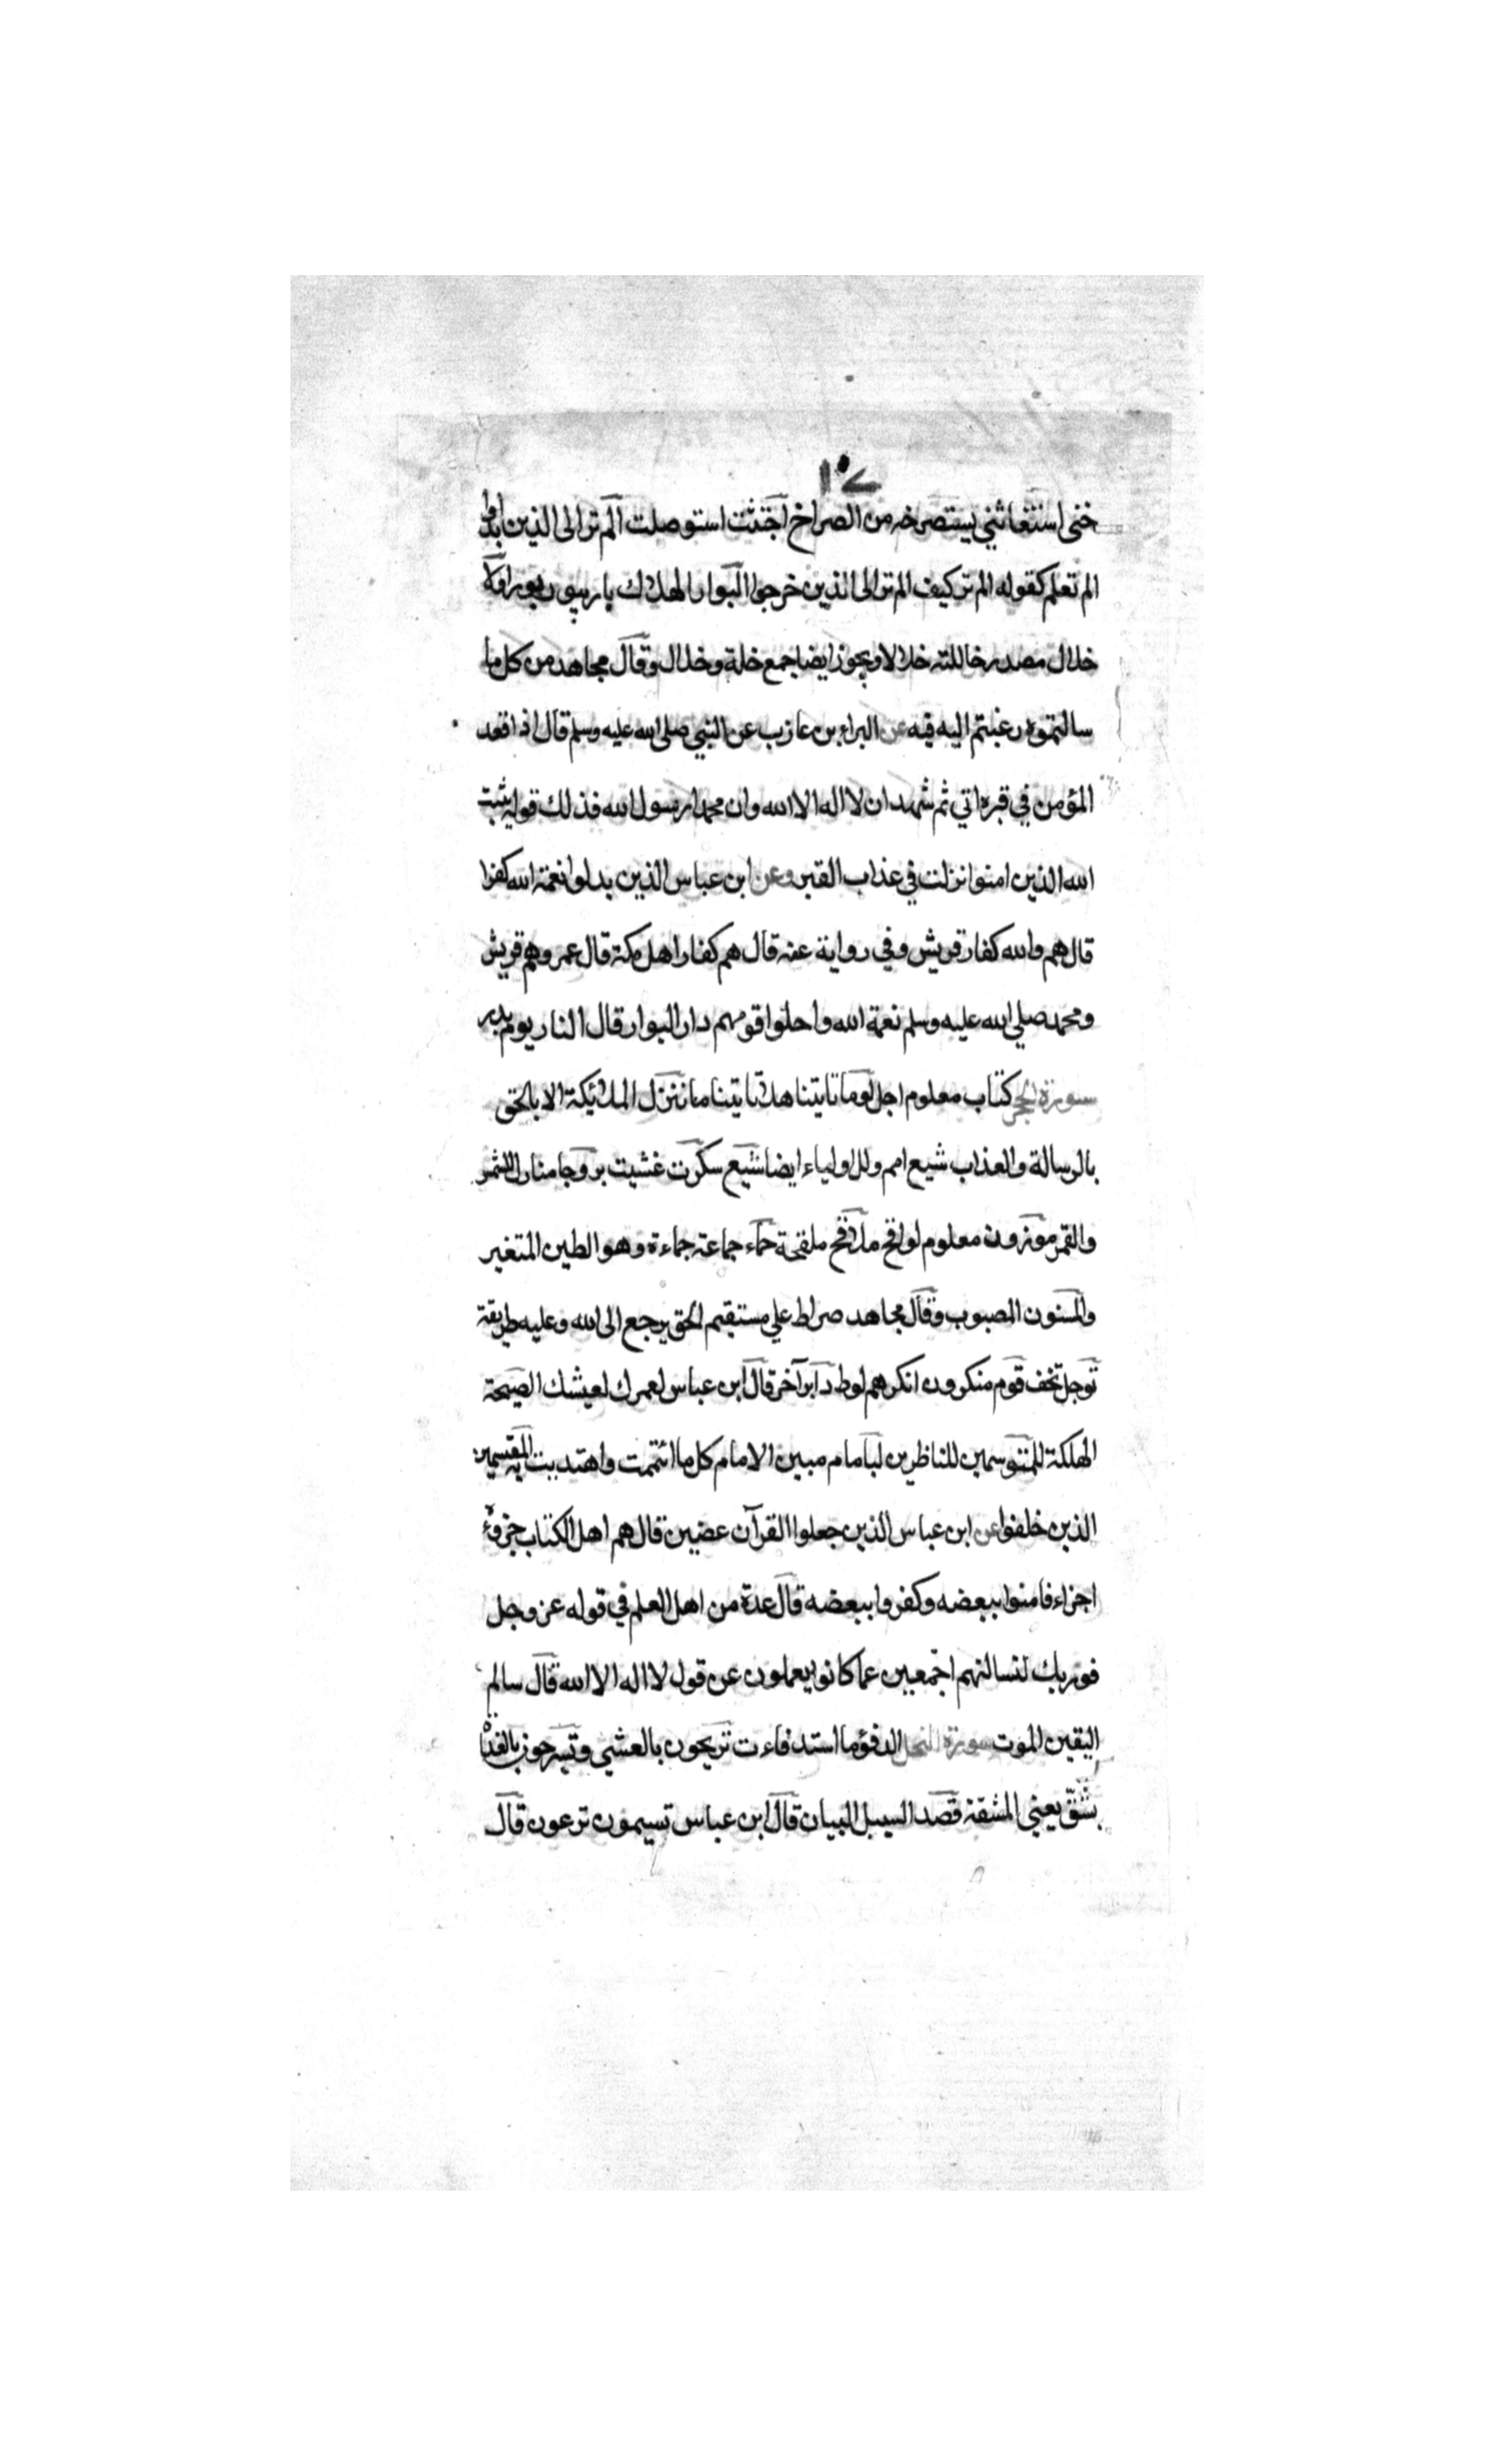 خني استغاثني يستصرخه من الصراخ اجتثت استوصلت الم تر الى الذين بدلوا
الم تعلم كقوله الم تر كيف الم تر الى الذين خرجوا البوار الهلاك بار يبور
خلال مصدر خاللته خلالا ويجوز ايضا جمع خلة وخلال وقال مجاهد من كل ما
سالتموه رغبتم اليه فيه عن البراء بن عازب عن النبي صلى الله عليه وسلم قال اذا اقعد
المؤمن في قبره اتي ثم شهد ان لا اله الا الله وان محمدا رسول الله فذلك قوله يثبت
الله الذين امنوا نزلت في عذاب القبر وعن ابن عباس الذين بدلوا نعمة الله كفرا
قال هم والله كفار قريش وفي رواية عنه قال هم كفار اهل مكة قال عمرو هم قريش
ومحمد صلي الله عليه وسلم نعمة الله واحلوا قومهم دار البوار قال النار يوم بدر
سورة الحجر كتاب معلوم اجل لوما تاتينا هلا تاتينا ما ننزل الملائكة الا بالحق
بالرسالة والعذاب شيع امم وللاولياء ايضا شيع سكرت غشيت بروجا منازل للشمس
والقمر موزون معلوم لواقح ملاقح ملقحة حماء جماعة حماءة وهو الطين المتغير
والمسنون المصبوب وقال مجاهد صراط علي مستقيم الحق يرجع الى الله وعليه طريقة
توجل تخف قوم منكرون انكرهم لوط دابر آخر قال ابن عباس لعمرك لعيشك الصيحة
الهلكة للمتوسمين للناظرين لبامام مبين الامام كل ما ائتممت واهتديت به المقتسمين
الذين حلفوا عن ابن عباس الذين جعلوا القرآن عضين قال هم اهل الكتاب جزؤه
اجزاء فامنوا ببعضه وكفروا ببعضه قال عدة من اهل العلم في قوله عز وجل
فوربك لنسالنهم اجمعين عما كانوا يعملون عن قول لا اله الا الله قال سالم
اليقين الموت سورة النحل الدفؤ ما استدفاءت تريحون بالعشي وتسرحون بالغداة
بشق يعني المشقة قصد السبيل البيان قال ابن عباس تسيمون ترعون قال